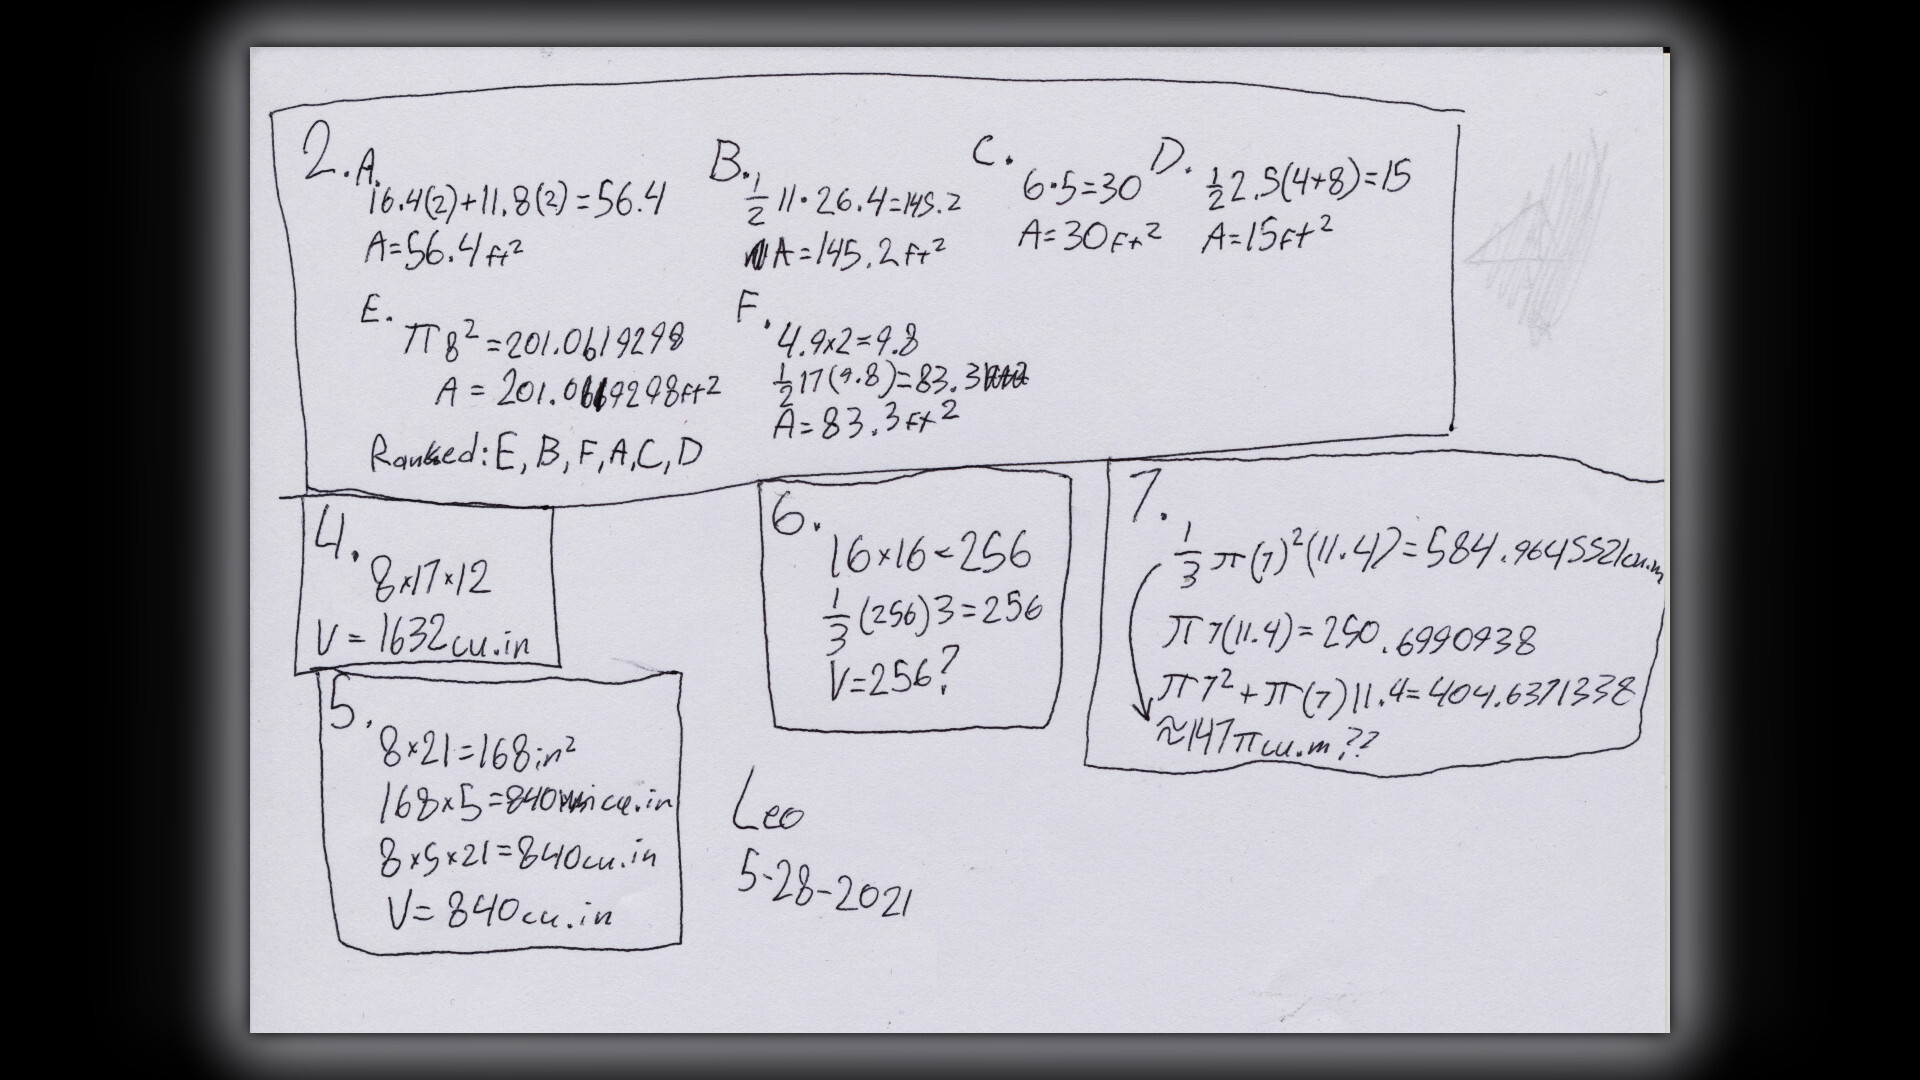 2. A.
16.4(2)+11.8(2)=56.4
A=56.4 ft²
B.
1/2 11·26.4=145.2
A=145.2 ft²
C.
6·5=30
A=30 Ft²
D.
1/2 2.5(4+8)=15
A=15 ft²
E.
π 8²=201.0619298
A = 201.0619298 ft²
F.
4.9×2=9.8
1/2 17(9.8)=83.3
A=83.3 ft²
Ranked: E, B, F, A, C, D
4.
8×17×12
V = 1632 cu.in
5.
8×21=168 in²
168×5=840 cu.in
8×5×21=840 cu.in
V= 840 cu.in
6.
16×16=256
1/3 (256)3=256
V=256?
7.
1/3 π(7)²(11.4)=584.9645521 cu.m
π7(11.4)=250.6990938
π7²+π(7)11.4=404.6371338
≈147π cu.m??
Leo
5-28-2021